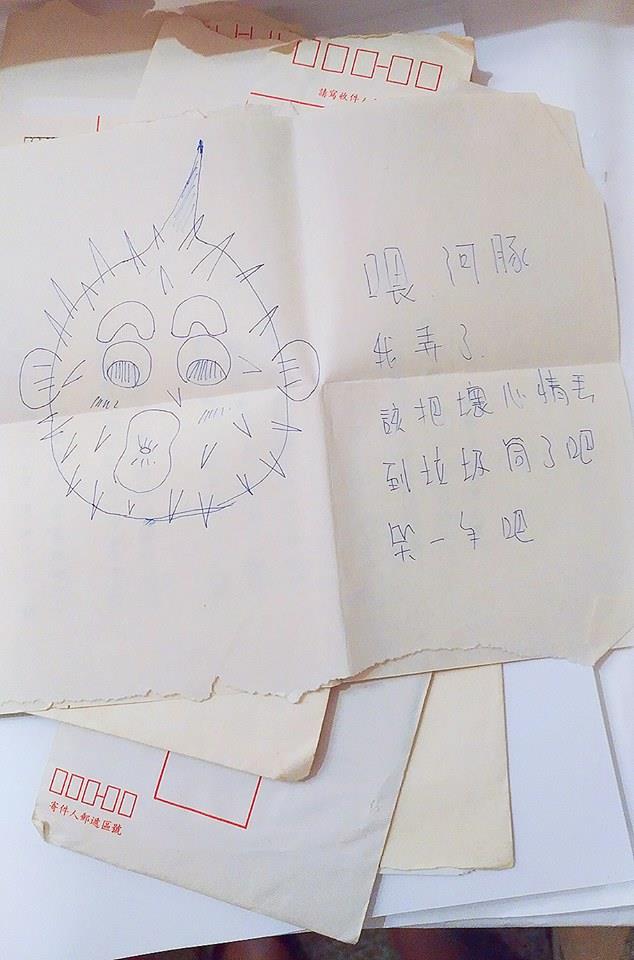 請寫收件人
喂 河豚
我弄了.
該把壞心情丟
到垃圾筒了吧
笑一下吧
寄件人郵遞區號